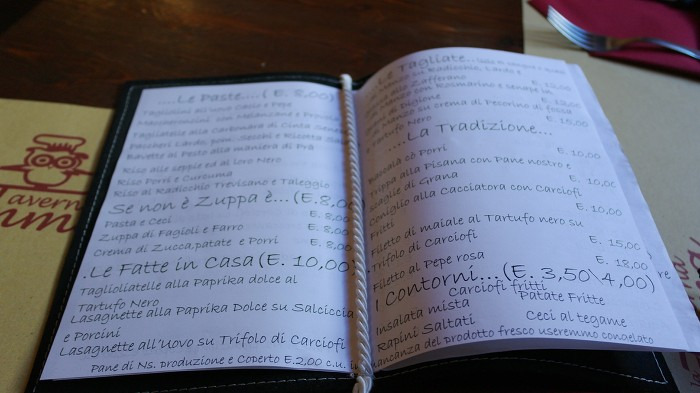 ....Le Paste....( E. 8,00)
Tagliolini all'uovo Cacio e Pepe
con Melanzane e
Tagliatelle alla Carbonara di Cinta
Paccheri Lardo, pom. Seccati e Ricotta
Bavette al Pesto alla maniera di Prà
Riso alle seppie ed al loro Nero
Riso Porri e Curcuma
Riso al Radicchio Trevisano e Taleggio
Se non è Zuppa è...(E.8,00)
Pasta e Ceci E. 8,00
Zuppa di Fagioli e Farro E. 8,00
Crema di Zucca,patate e Porri E. 8,00
.Le Fatte in Casa (E. 10,00)
Tagliolatelle alla Paprika dolce al
Tartufo Nero
Lasagnette alla Paprika Dolce su Salciccia
e Porcini
Lasagnette all'Uovo su Trifolo di Carciofi
Pane di Ns. produzione e Coperto E.2,00 c.u.
Le Tagliate..
su Radicchio, Lardo e
allo Zafferano
con Rosmarino e senape
di Digione
su crema di Pecorino di fossa
e Tartufo Nero
....La Tradizione...
cò Porri E. 10,00
Trippa alla Pisana con Pane nostro e
Scaglie di Grana E. 10,00
Coniglio alla Cacciatora con Carciofi
Fritti E. 10,00
Filetto di maiale al Tartufo nero su
Trifolo di Carciofi E. 15,00
Filetto al Pepe rosa E. 18,00
I Contorni...(E. 3,50\4,00)
Carciofi fritti
Insalata mista Patate Fritte
Rapini Saltati Ceci al tegame
mancanza del prodotto fresco useremmo congelato
Tavern